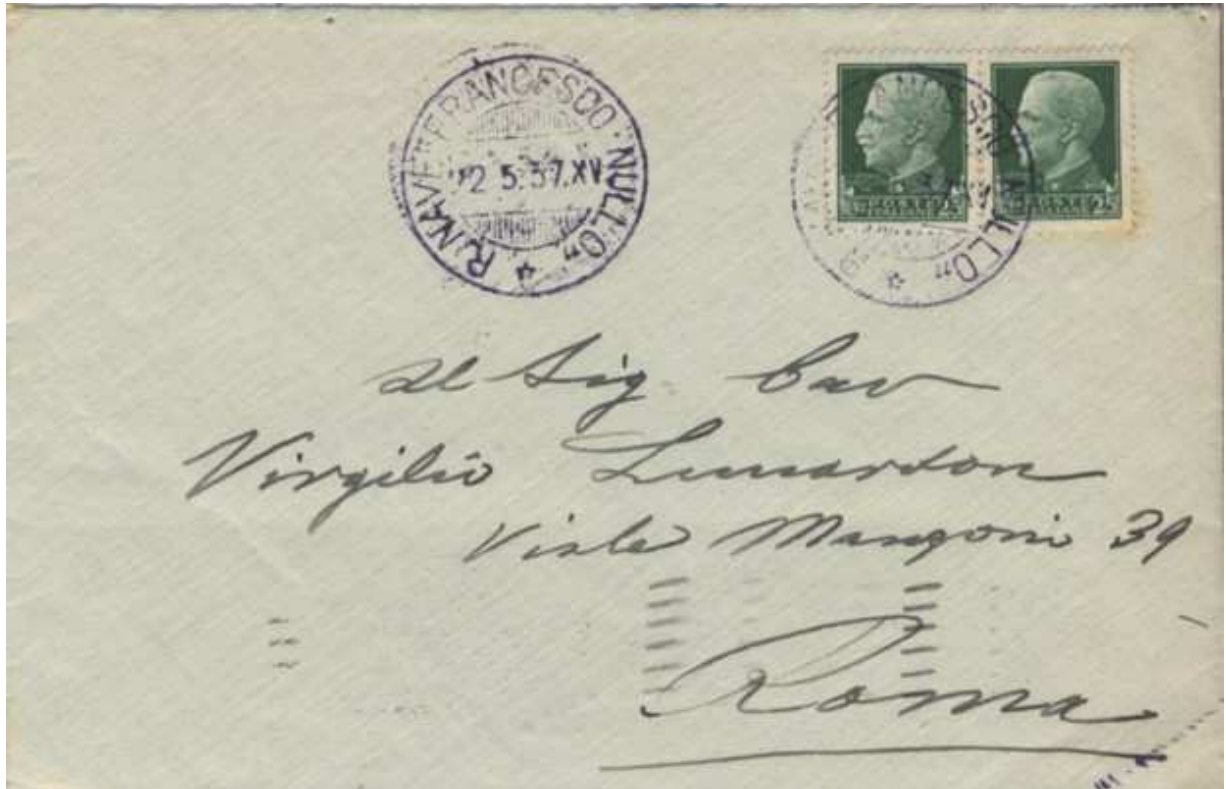 R. NAVE "FRANCESCO NULLO"
22.5.37.XV
NULLO"
Al Sig Cav
Virgilio Lunardon
Viale Manzoni 39
Roma